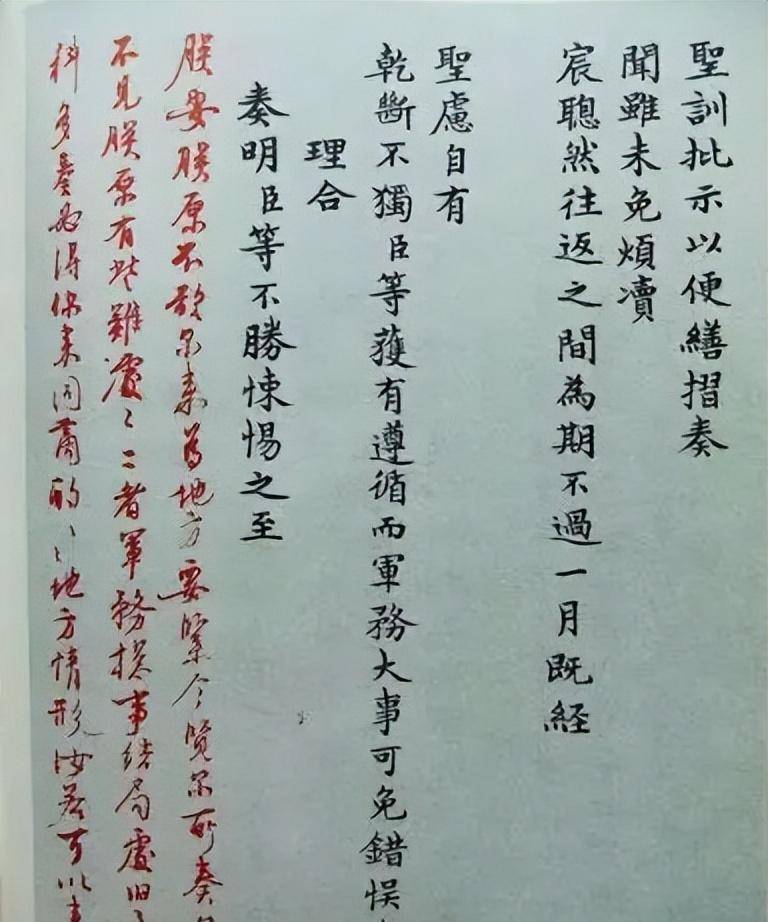 聖訓批示以便繕摺奏
聞雖未免煩瀆
宸聰然往返之間為期不過一月既経
聖慮自有
乾斷不獨臣等蒦有遵循而軍務大事可免錯悮
理合
奏明臣等不勝悚惕之至
朕安朕原不欲尔来為地方要緊今覽尔所奏
不見朕原有些難處〻二者軍務摠事結局處旧
科多奏必得你来同商酌〻地方情形汝若可以来